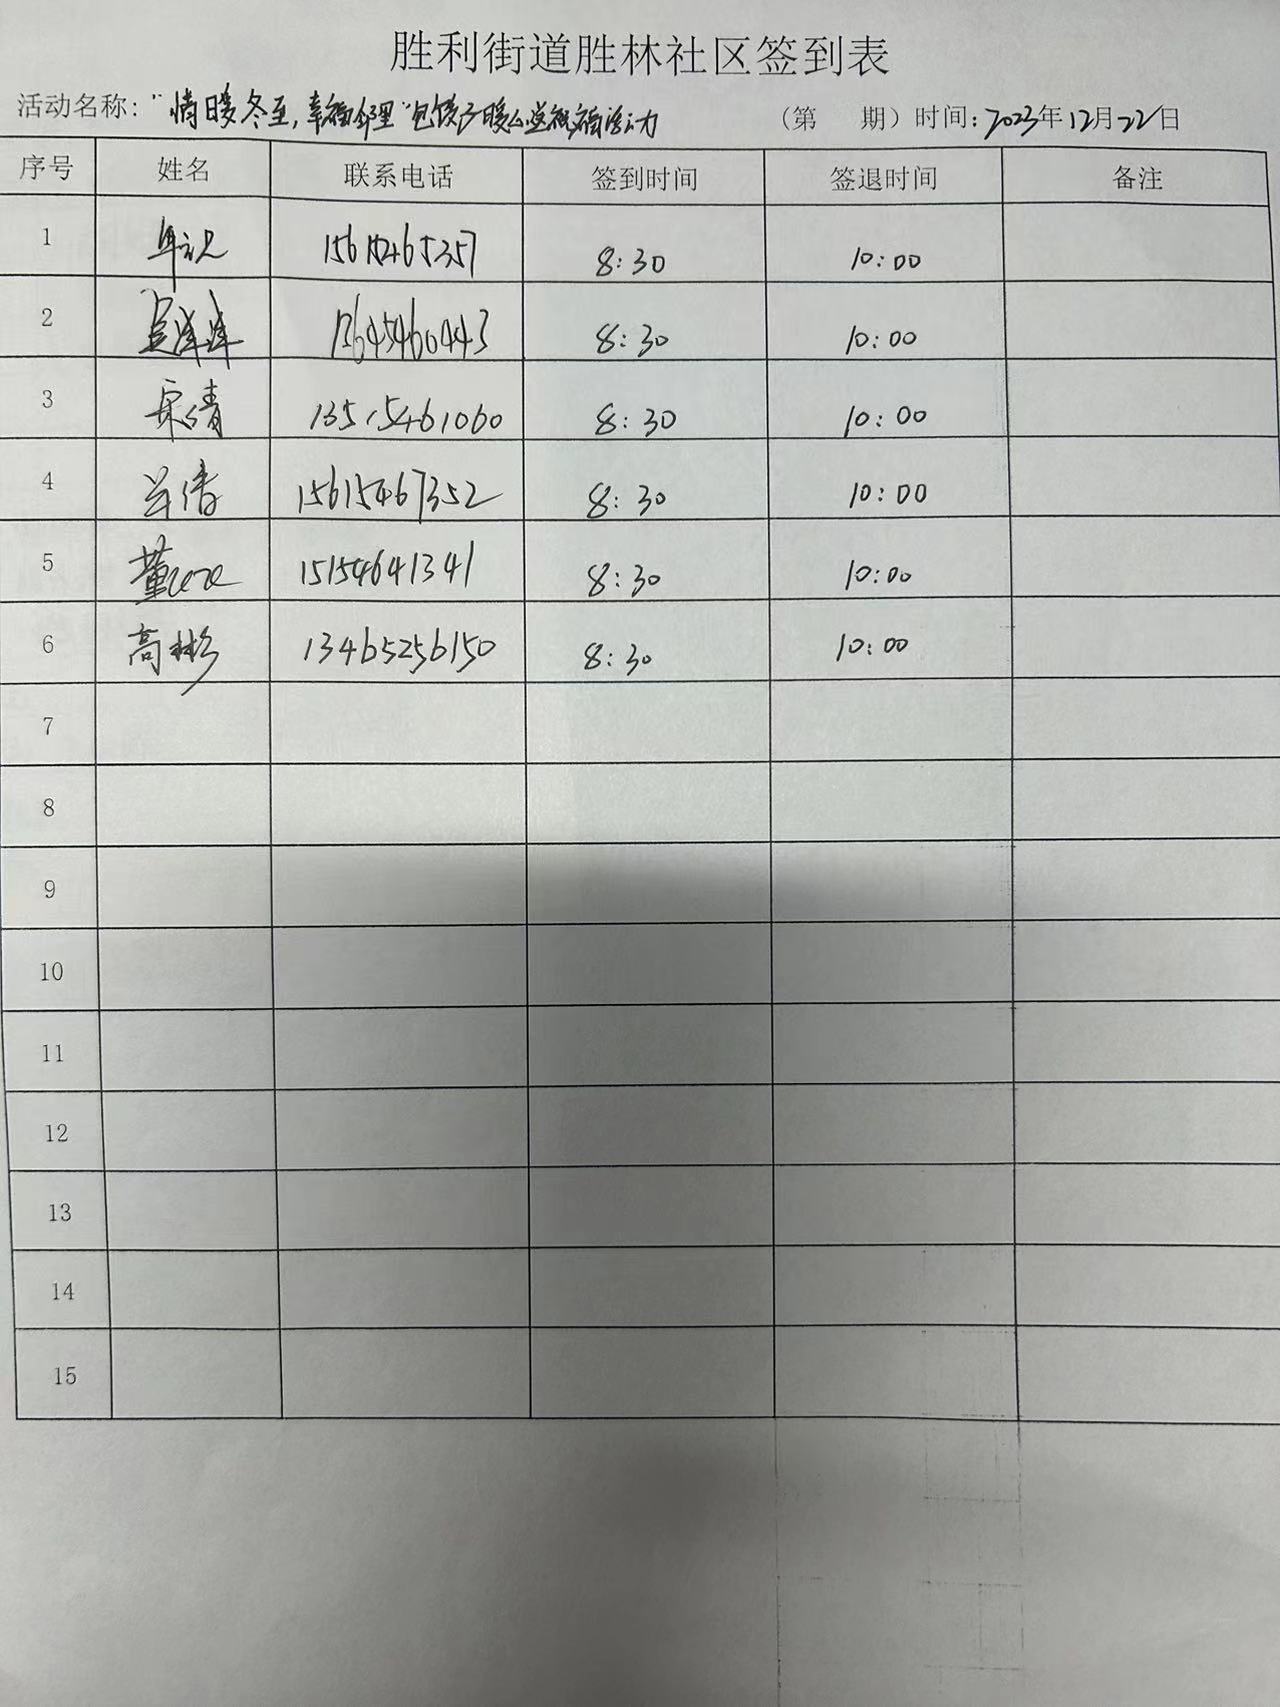 胜利街道胜林社区签到表
活动名称："情暖冬至,幸福邻里"包饺子暖心送祝福活动 (第 期) 时间:2023年12月22日
序号 姓名 联系电话 签到时间 签退时间 备注
1 8:30 10:00
2 8:30 10:00
3 宋倩 13515461060 8:30 10:00
4 兰倩 15615467352 8:30 10:00
5 董 15154641341 8:30 10:00
6 高彬 13465256150 8:30 10:00
7
8
9
10
11
12
13
14
15